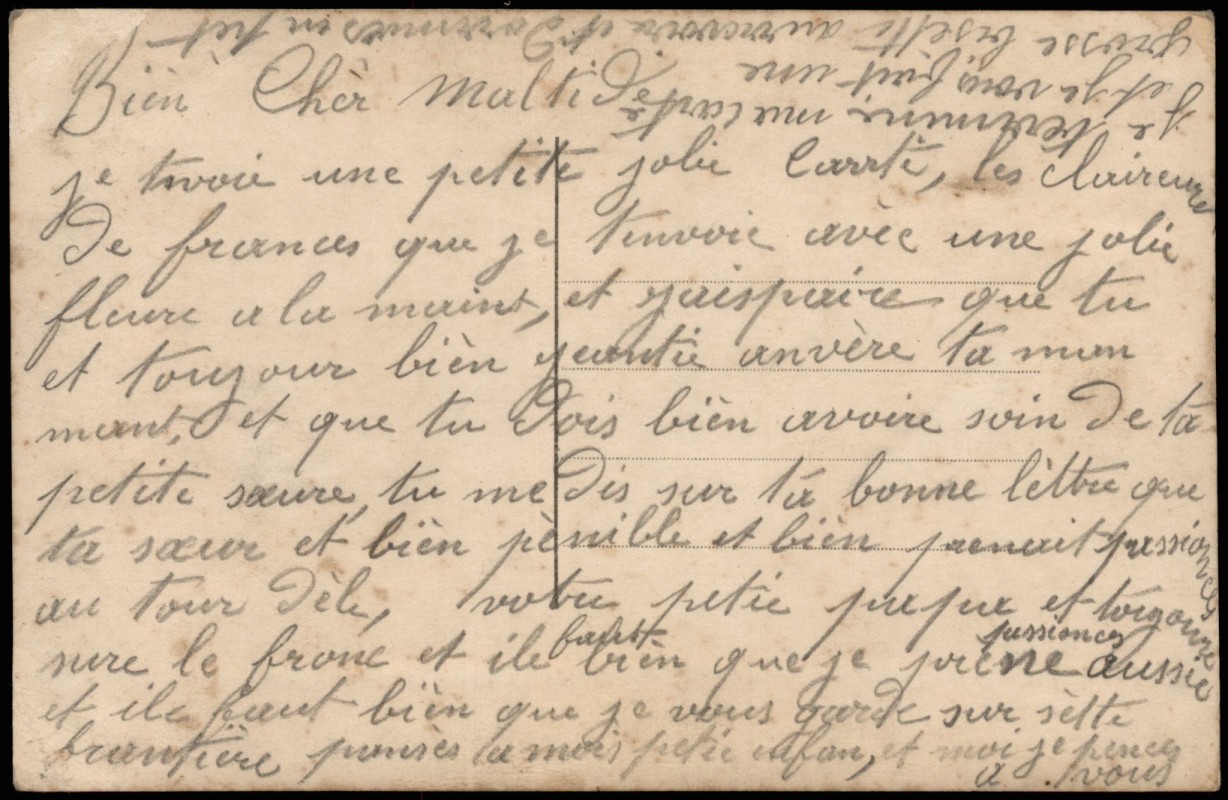 Bièn Chèr Maltide
je tnvoie une petite jolie Carrte, les claireure
de frances que je tenvoie avèc une jolie
fleure a la maint, et jaispaire que tu
et toujour bièn jeantie anvère ta man
mant, et que tu dois bièn avoire soin de ta
petite sœure, tu me dis sur ta bonne lèttre que
ta sœur et bièn pènible et bièn prenait passionces
au tour dèle, votre petie papa et toujoure
sure le fronc et ile faut bièn que je prène passionces aussie
et ile faut bièn que je vous garde sur sètte
frantière pensès a mois petie enfan, et moi je pences
a vous
je tèrmine ma carte
et je vous fait une
grosse bisette aurevoire et dormès en pet